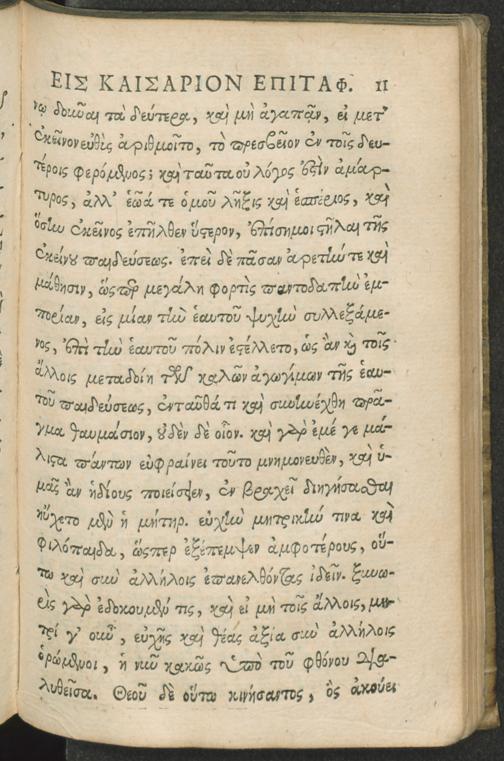 ΕΙΣ ΚΑΙΣΑΡΙΟΝ ΕΠΙΤΑΦ. 11
νῳ δοκῶσαι τὰ δεύτερα, καὶ μὴ ἀγαπᾷν, εἰ μετ᾽
ἐκεῖνον εὐθὺς ἀριθμοῖτο, τὸ πρεσβεῖον ἐν τοῖς δευ-
τέροις φερόμενος; καὶ ταῦτα οὐ λόγος ἐστὶν ἀμάρ-
τυρος, ἀλλ᾽ ἑῴα τε ὁμοῦ λῆξις καὶ ἑσπέριος, καὶ
ὅσην ἐκεῖνος ἐπῆλθεν ὕστερον, ἐπίσημοι στῆλαι τῆς
ἐκείνου παιδεύσεως. ἐπεὶ δὲ πᾶσαν ἀρετήν τε καὶ
μάθησιν, ὥσπερ μεγάλη φορτὶς παντοδαπὴν ἐμ-
πορίαν, εἰς μίαν τὴν ἑαυτοῦ ψυχὴν συλλεξάμε-
νος, ἐπὶ τὴν ἑαυτοῦ πόλιν ἐστέλλετο, ὡς ἂν καὶ τοῖς
ἄλλοις μεταδοίη τῶν καλῶν ἀγωγίμων τῆς ἑαυ-
τοῦ παιδεύσεως, ἐνταῦθά τι καὶ συνηνέχθη πρᾶ-
γμα θαυμάσιον, οὐδὲν δὲ οἷον. καὶ γὰρ ἐμέ γε μά-
λιστα πάντων εὐφραίνει τοῦτο μνημονευθὲν, καὶ ὑ-
μᾶς ἂν ἡδίους ποιείσθεν, ἐν βραχεῖ διηγήσασθαι
ηὔχετο μὲν ἡ μήτηρ. εὐχὴν μητρικήν τινα καὶ
φιλόπαιδα, ὥσπερ ἐξέπεμψεν ἀμφοτέρους, οὕ-
τω καὶ σὺν ἀλλήλοις ἐπανελθόντας ἰδεῖν. ξυνω-
ρὶς γὰρ ἐδοκοῦμέν τις, καὶ εἰ μὴ τοῖς ἄλλοις, μη-
τρί γ᾽ οὖν, εὐχῆς καὶ θέας ἀξία σὺν ἀλλήλοις
ὁρώμενοι, ἡ νῦν κακῶς ὑπὸ τοῦ φθόνου δια-
λυθεῖσα. Θεοῦ δὲ οὕτω κινήσαντος, ὃς ἀκούει